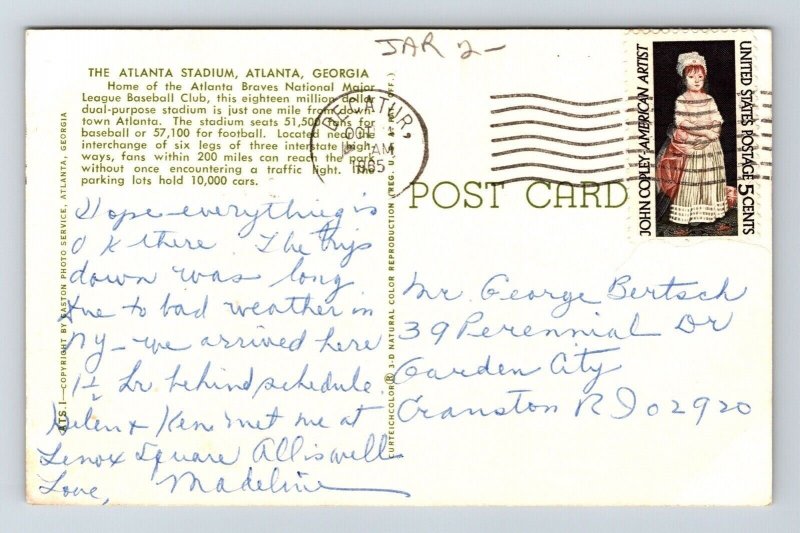 JAR 2-
THE ATLANTA STADIUM, ATLANTA, GEORGIA
Home of the Atlanta Braves National Major
League Baseball Club, this eighteen million dollar
dual-purpose stadium is just one mile from down-
town Atlanta. The stadium seats 51,500 fans for
baseball or 57,100 for football. Located at the
interchange of six legs of three interstate high-
ways, fans within 200 miles can reach the park
without once encountering a traffic light. The
parking lots hold 10,000 cars.
Hope everything is
O K there. The trip
down was long
due to bad weather in
NY - we arrived here
1½ hr behind schedule.
Helen & Ken met me at
Lenox Square All is well
Love, Madeline
ATS.1—COPYRIGHT BY EASTON PHOTO SERVICE, ATLANTA, GEORGIA
CURTEICHCOLOR® 3-D NATURAL COLOR REPRODUCTION (REG. U.S.A. PAT. OFF.)
DECATUR,
OCT
AM
1965
POST CARD
JOHN COPLEY·AMERICAN ARTIST
UNITED STATES POSTAGE 5 CENTS
Mr. George Bertsch
39 Perennial Dr
Garden City
Cranston R I 02920